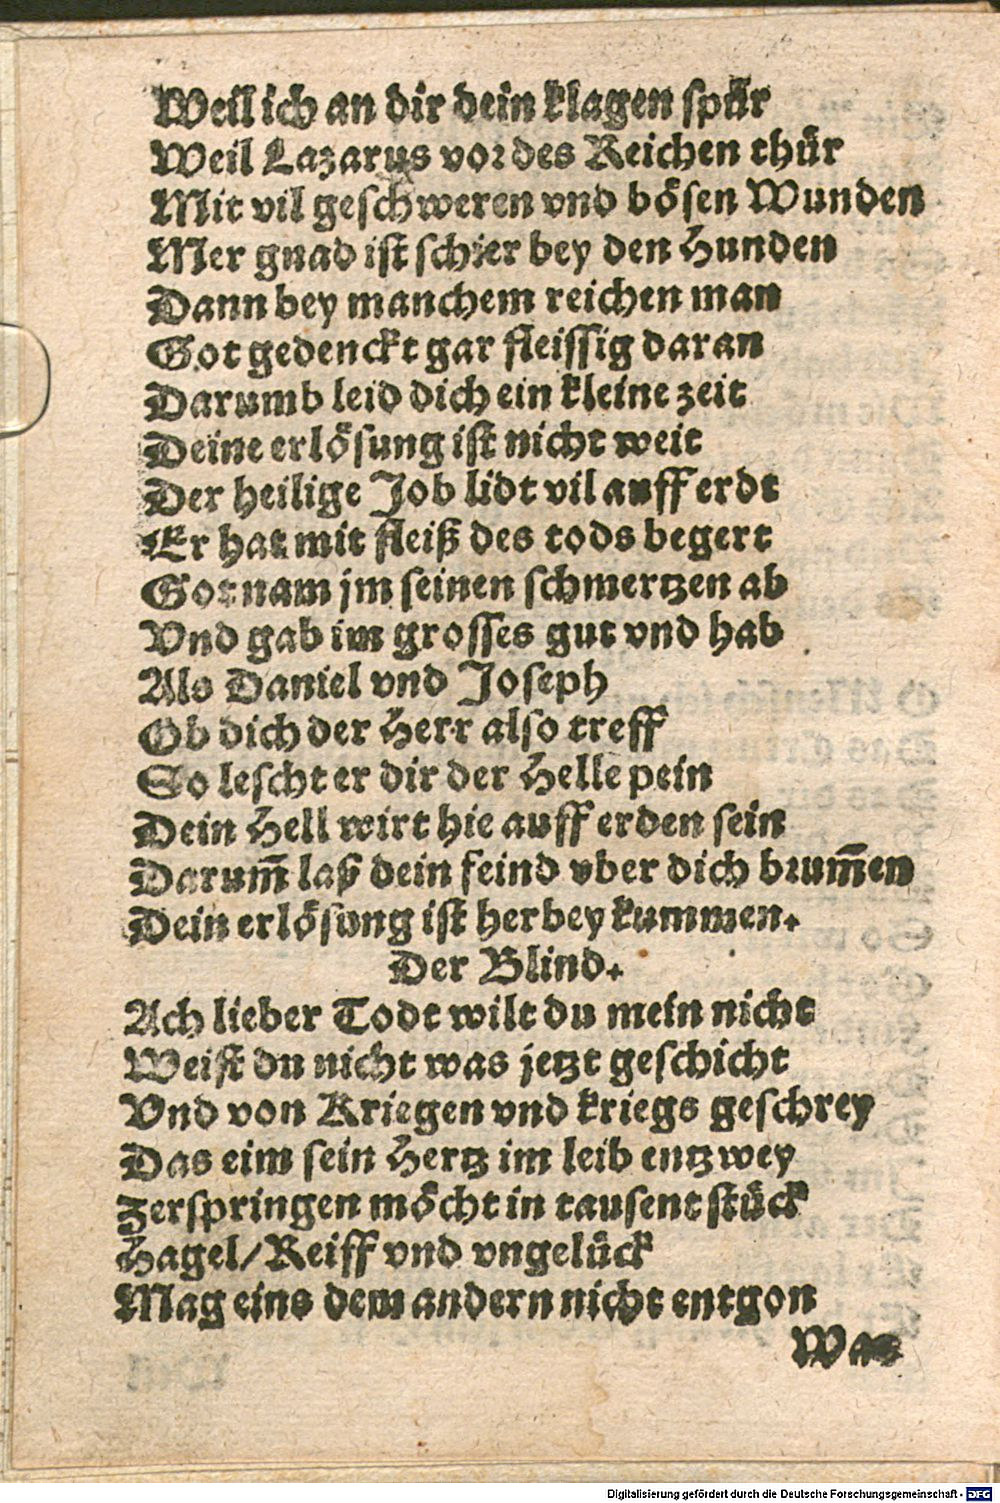 Weil ich an dir dein klagen spür
Weil Lazarus vor des Reichen thür
Mit vil geschweren vnd bösen Wunden
Mer gnad ist schier bey den Hunden
Dann bey manchem reichen man
Got gedenckt gar fleissig daran
Darumb leid dich ein kleine zeit
Deine erlösung ist nicht weit
Der heilige Job lidt vil auff erdt
Er hat mit fleiß des tods begert
Got nam jm seinen schmertzen ab
Vnd gab im grosses gut vnd hab
Als Daniel vnd Joseph
Ob dich der Herr also treff
So lescht er dir der Helle pein
Dein Hell wirt hie auff erden sein
Darum̃ laß dein feind vber dich brum̃en
Dein erlösung ist herbey kummen.
Der Blind.
Ach lieber Todt wilt du mein nicht
Weist du nicht was jetzt geschicht
Vnd von Kriegen vnd kriegs geschrey
Das eim sein Hertz im leib entzwey
Zerspringen möcht in tausent stück
Hagel/Reiff vnd vngelück
Mag eins dem andern nicht entgon
Was
Digitalisierung gefördert durch die Deutsche Forschungsgemeinschaft - DFG